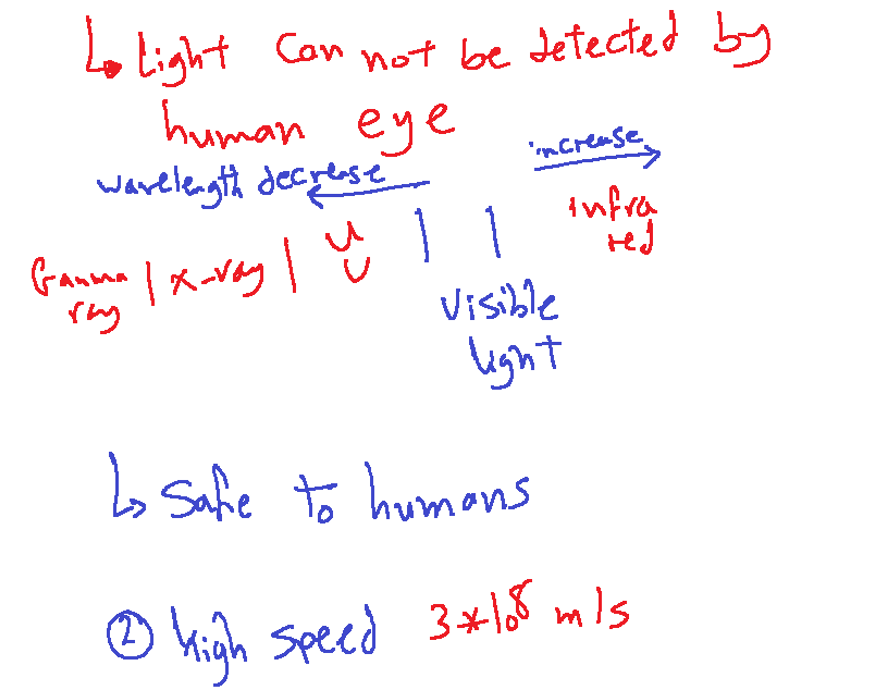 ↳ Light Can not be detected by
human eye
wavelength decrease ← increase →
Gamma ray | x-ray | UV | | infra red
visible light
↳ Safe to humans
② High speed 3*10⁸ m/s